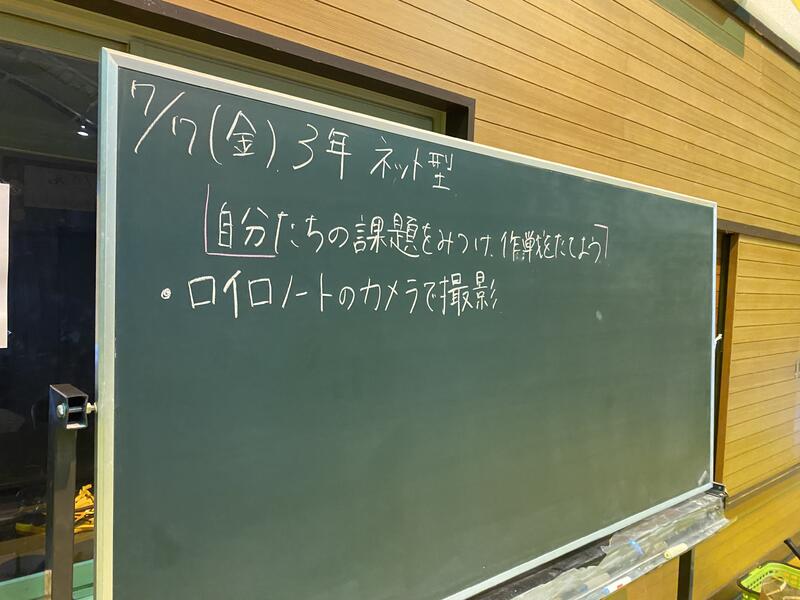 7/17(金) 3年 ネット型
自分たちの課題をみつけ、作戦をたてよう
・ロイロノートのカメラで撮影